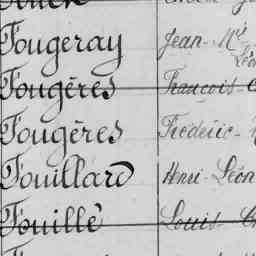 Fougeray Jean-
Fougères François-
Fougères Frédéric-
Fouillard Henri-Léon
Fouillé Louis-